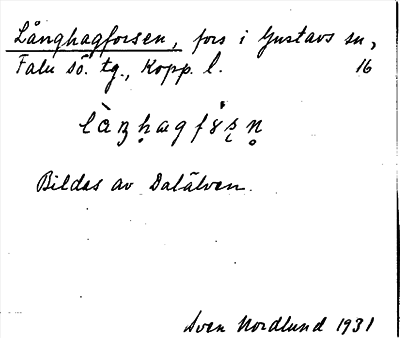 Långhagforsen, fors i Gustavs sn,
Falu sö. tg., Kopp. l. 16
Bildas av Dalälven.
Sven Nordlund 1931